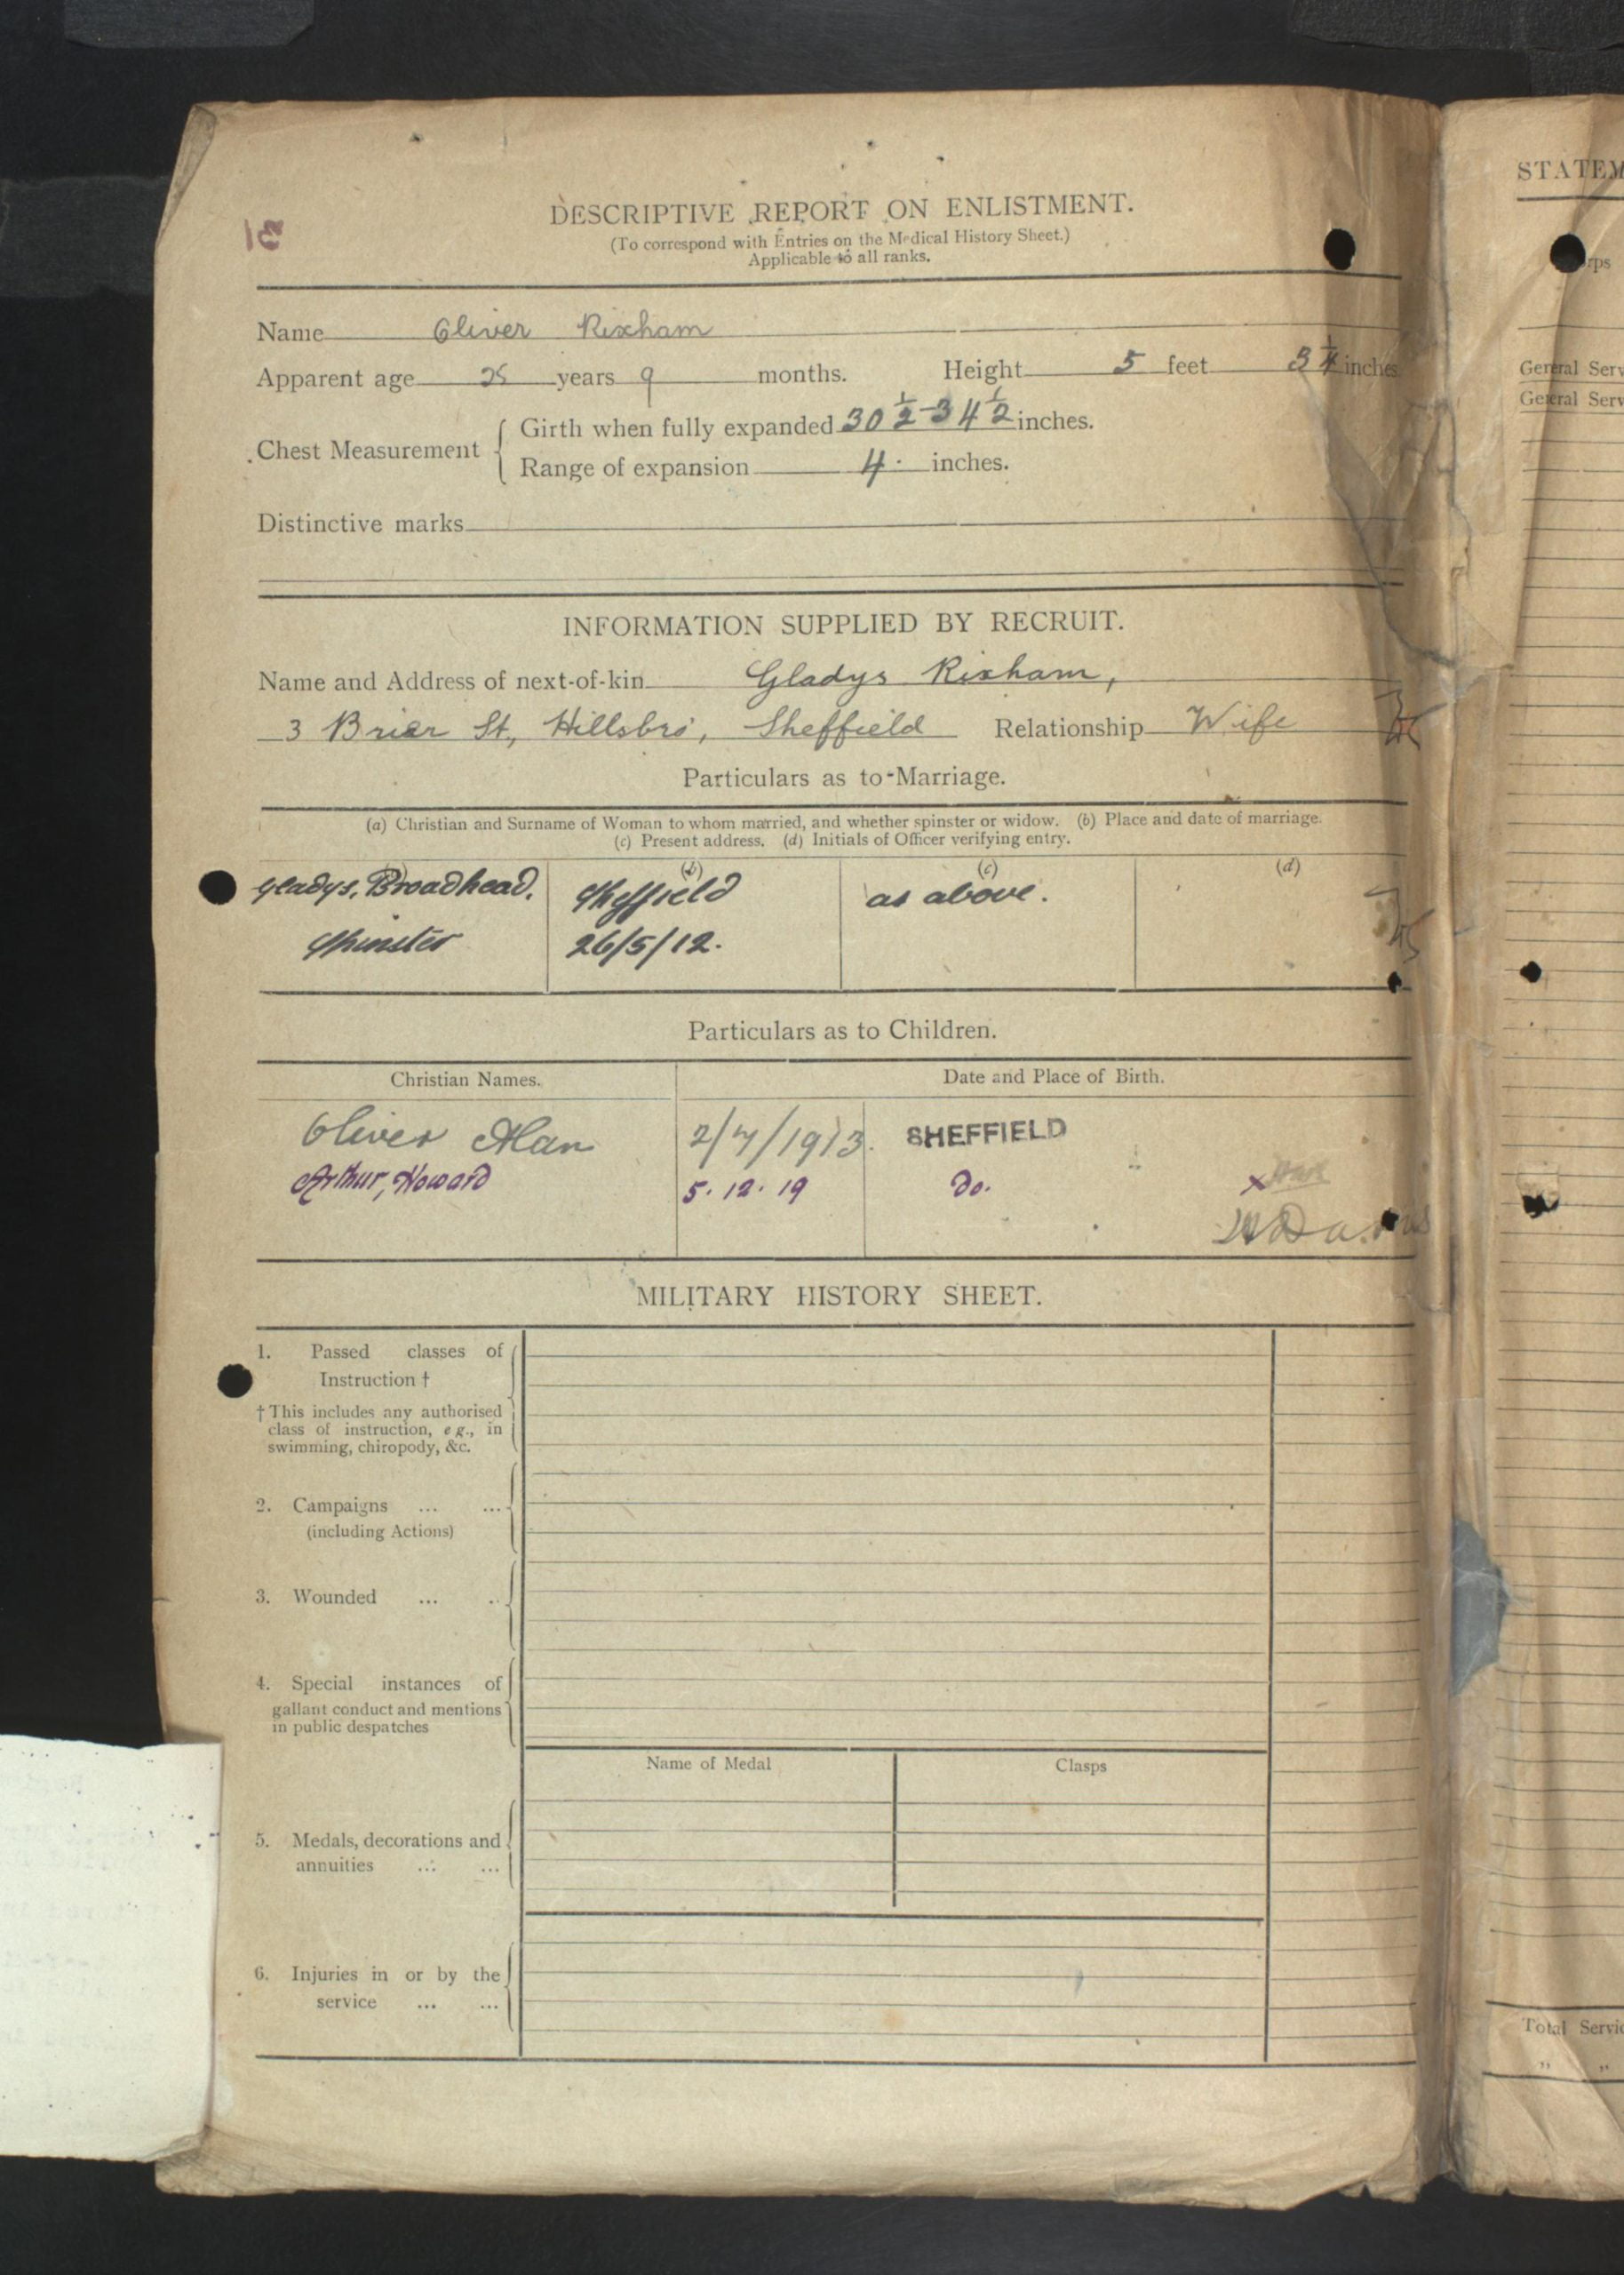 DESCRIPTIVE REPORT ON ENLISTMENT.
(To correspond with Entries on the Medical History Sheet.)
Applicable to all ranks.
Name Oliver Rixham
Apparent age 25 years 9 months. Height 5 feet 3 1/4 inches.
Chest Measurement
Girth when fully expanded 30 1/2 - 34 1/2 inches.
Range of expansion 4. inches.
Distinctive marks
INFORMATION SUPPLIED BY RECRUIT.
Name and Address of next-of-kin Gladys Rixham,
3 Brier St, Hillsbro', Sheffield Relationship Wife
Particulars as to Marriage.
(a) Christian and Surname of Woman to whom married, and whether spinster or widow. (b) Place and date of marriage.
(c) Present address. (d) Initials of Officer verifying entry.
(b) (c) (d)
Gladys, Broadhead. Sheffield as above.
Spinster 26/5/12.
Particulars as to Children.
Christian Names. Date and Place of Birth.
Oliver Alan 2/7/1913. SHEFFIELD
Arthur, Howard 5.12.19 Do. x
MILITARY HISTORY SHEET.
1. Passed classes of
Instruction †
† This includes any authorised
class of instruction, e.g., in
swimming, chiropody, &c.
2. Campaigns ... ...
(including Actions)
3. Wounded ... ..
4. Special instances of
gallant conduct and mentions
in public despatches
Name of Medal Clasps
5. Medals, decorations and
annuities ... ...
6. Injuries in or by the
service ... ...
STATEM
rps
General Serv
General Serv
Total Servic
" "